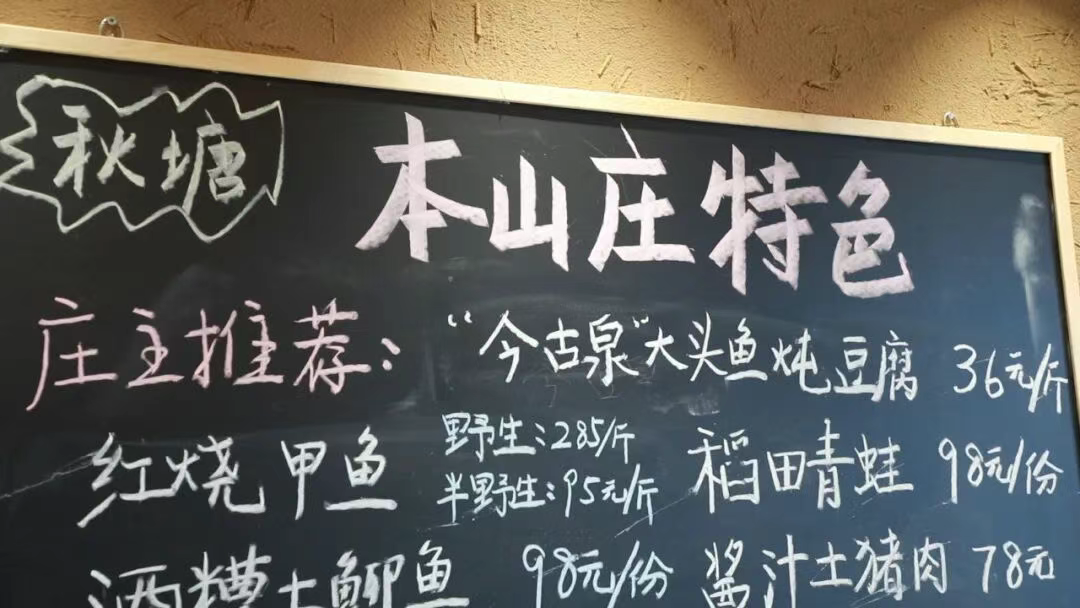 秋塘
本山庄特色
庄主推荐：“今古泉”大头鱼炖豆腐 36元/斤
红烧甲鱼 野生：285/斤 半野生：95元/斤 稻田青蛙 98元/份
酒糟土鲫鱼 98元/份 酱汁土猪肉 78元